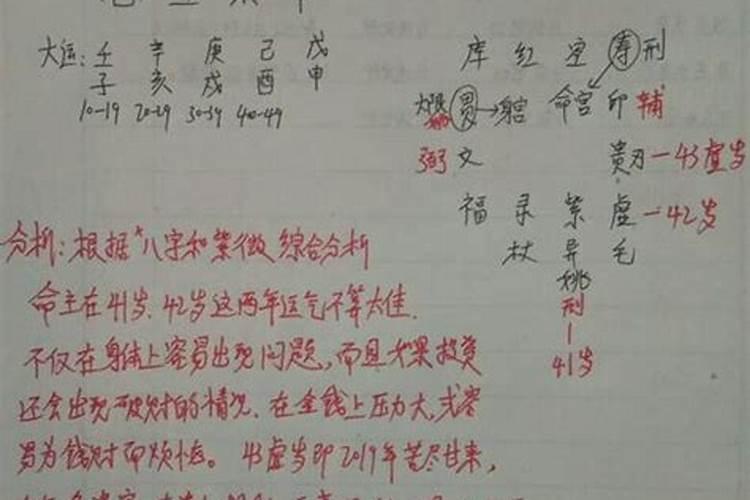 大运: 壬 辛 庚 己 戊
子 亥 戌 酉 申
10-19 20-29 30-39 40-49
库 红 空 寿 刑
大限 贯→ 命宫 印 辅
弼 文 贵 刃 —43虚岁
福 录 紫 虚 —42岁
杖 异 毛
姚
刑
41岁
分析: 根据"八字和紫微综合分析
命主在41岁、42岁这两年运气不算太佳.
不仅在身体上容易出现问题, 而且如果投资
还会出现破财的情况. 在金钱上压力大, 或容
易为钱财而烦恼。 43虚岁即2019年苦尽甘来,